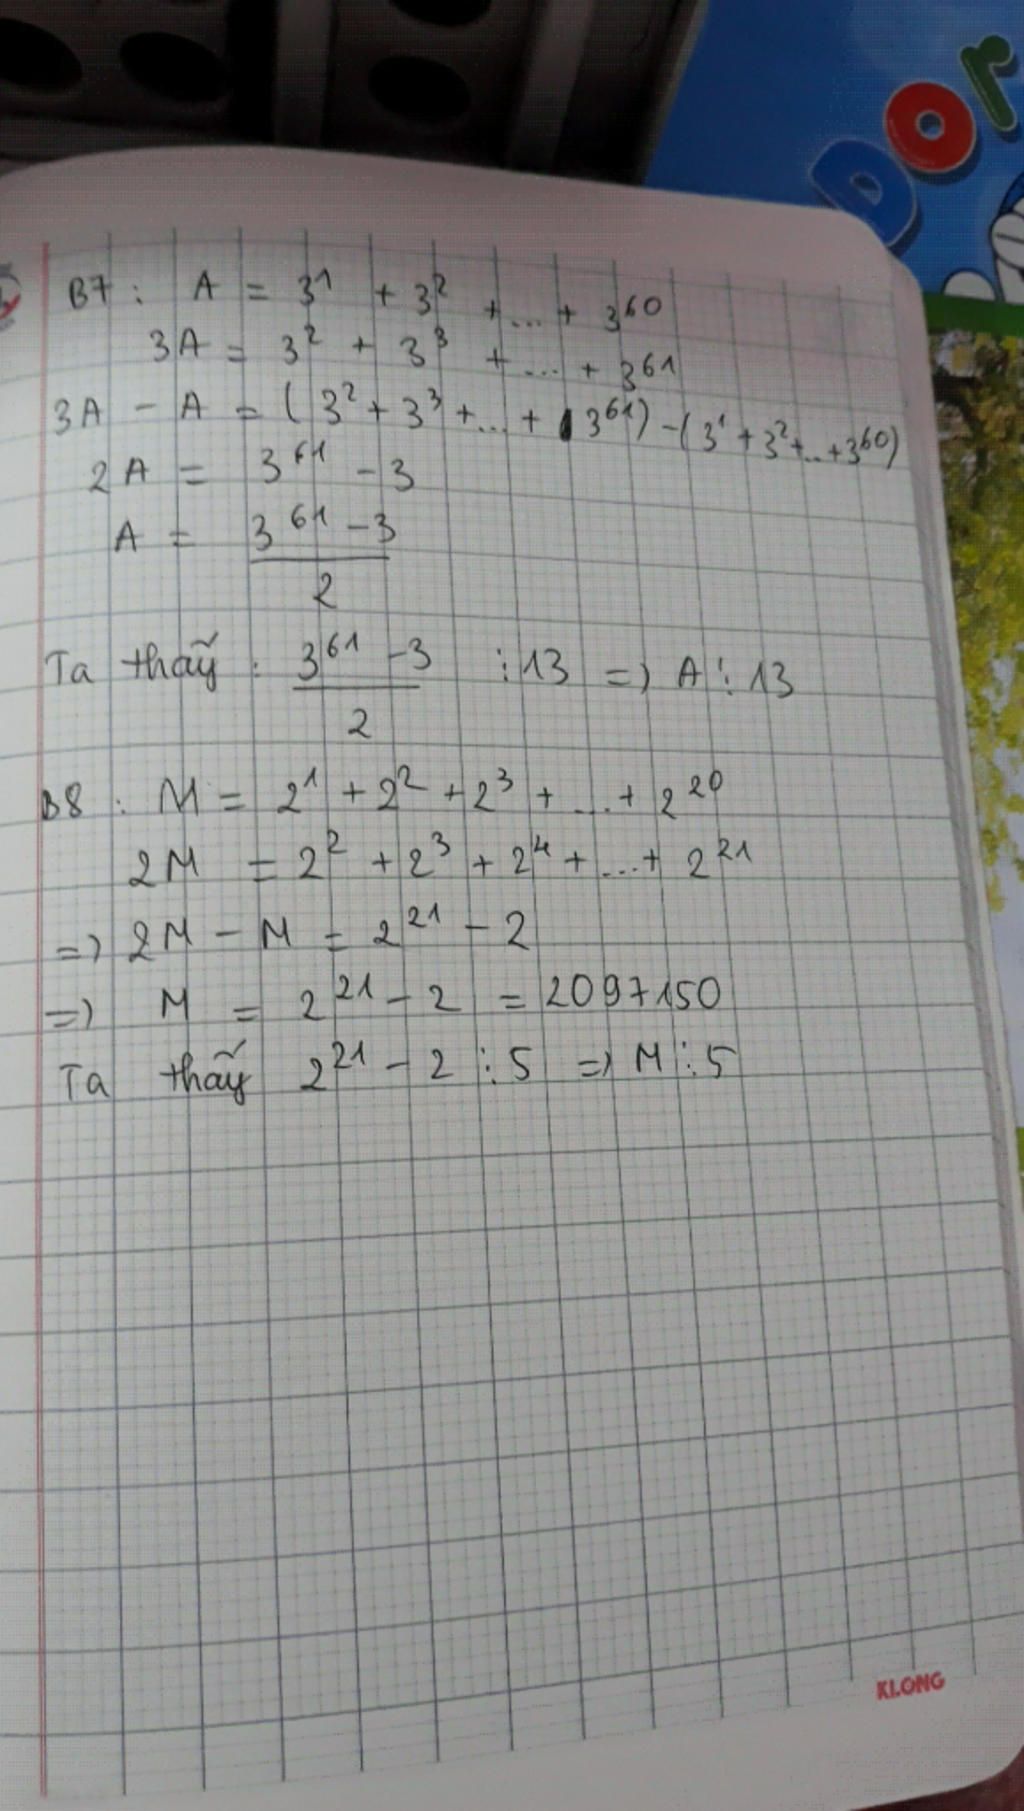 DOr
B7 : A = 3¹ + 3² + ... + 3⁶⁰
3A = 3² + 3³ + ... + 3⁶¹
3A - A = ( 3² + 3³ + ... + 3⁶¹) - (3¹ + 3² + .. + 3⁶⁰)
2A = 3⁶¹ - 3
A = 3⁶¹ - 3
2
Ta thấy : 3⁶¹ - 3 ⋮ 13 => A ⋮ 13
2
B8 : M = 2¹ + 2² + 2³ + ... + 2²⁰
2M = 2² + 2³ + 2⁴ + ... + 2²¹
=> 2M - M = 2²¹ - 2
=> M = 2²¹ - 2 = 2097150
Ta thấy 2²¹ - 2 ⋮ 5 => M ⋮ 5
KLONG